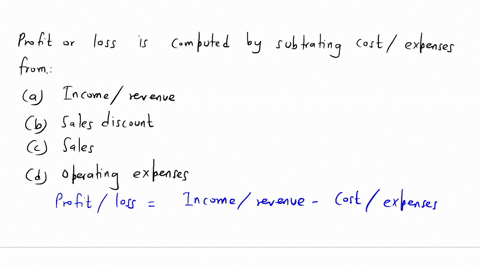 Profit or loss is computed by subtrating cost/expenses
from:
(a) Income/revenue
(b) Sales discount
(c) Sales
(d) operating expenses
Profit/loss = Income/revenue - Cost/expenses